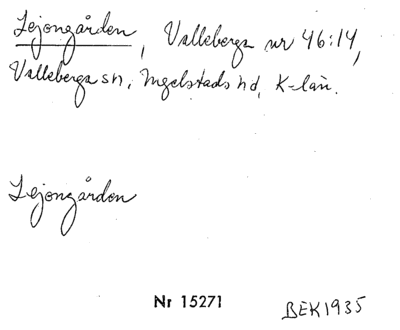 Lejongården, Valleberga nr 46:14,
Valleberga sn, Ingelstads hd, K-län.
Lejongården
Nr 15271
BEK1935